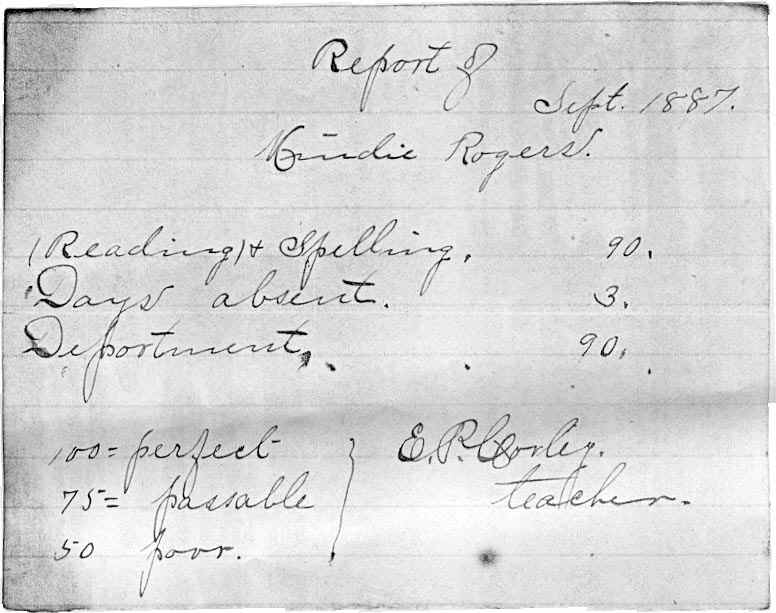 Report of
Sept. 1887.
Rogers.
(Reading) & Spelling. 90.
Days absent. 3.
Deportment. 90.
100 = perfect
75 = passable
50 poor.
E. P. Corley.
teacher.